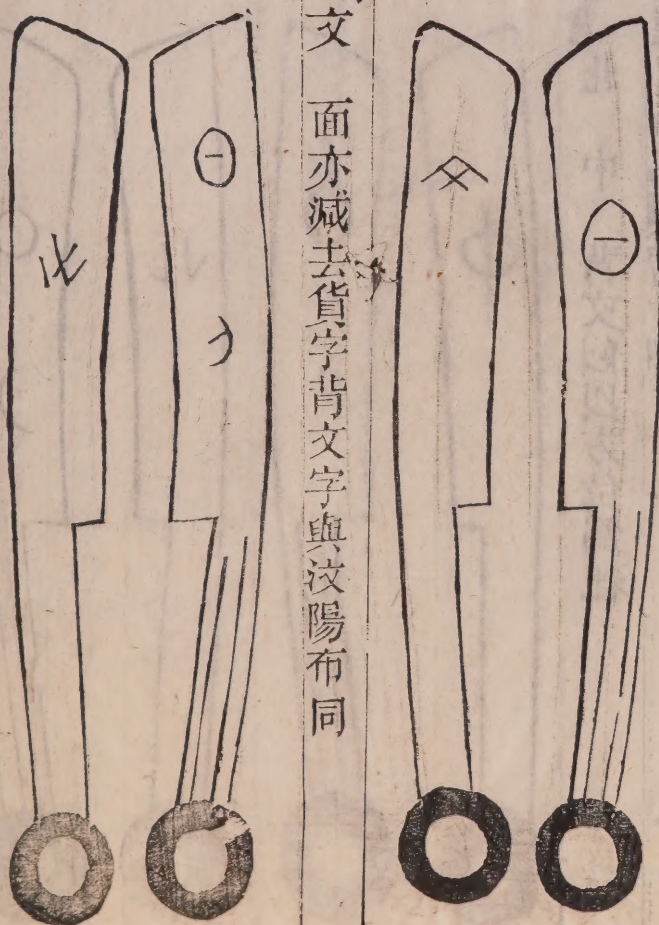 文　面亦減去貨字背文字與汶陽布同